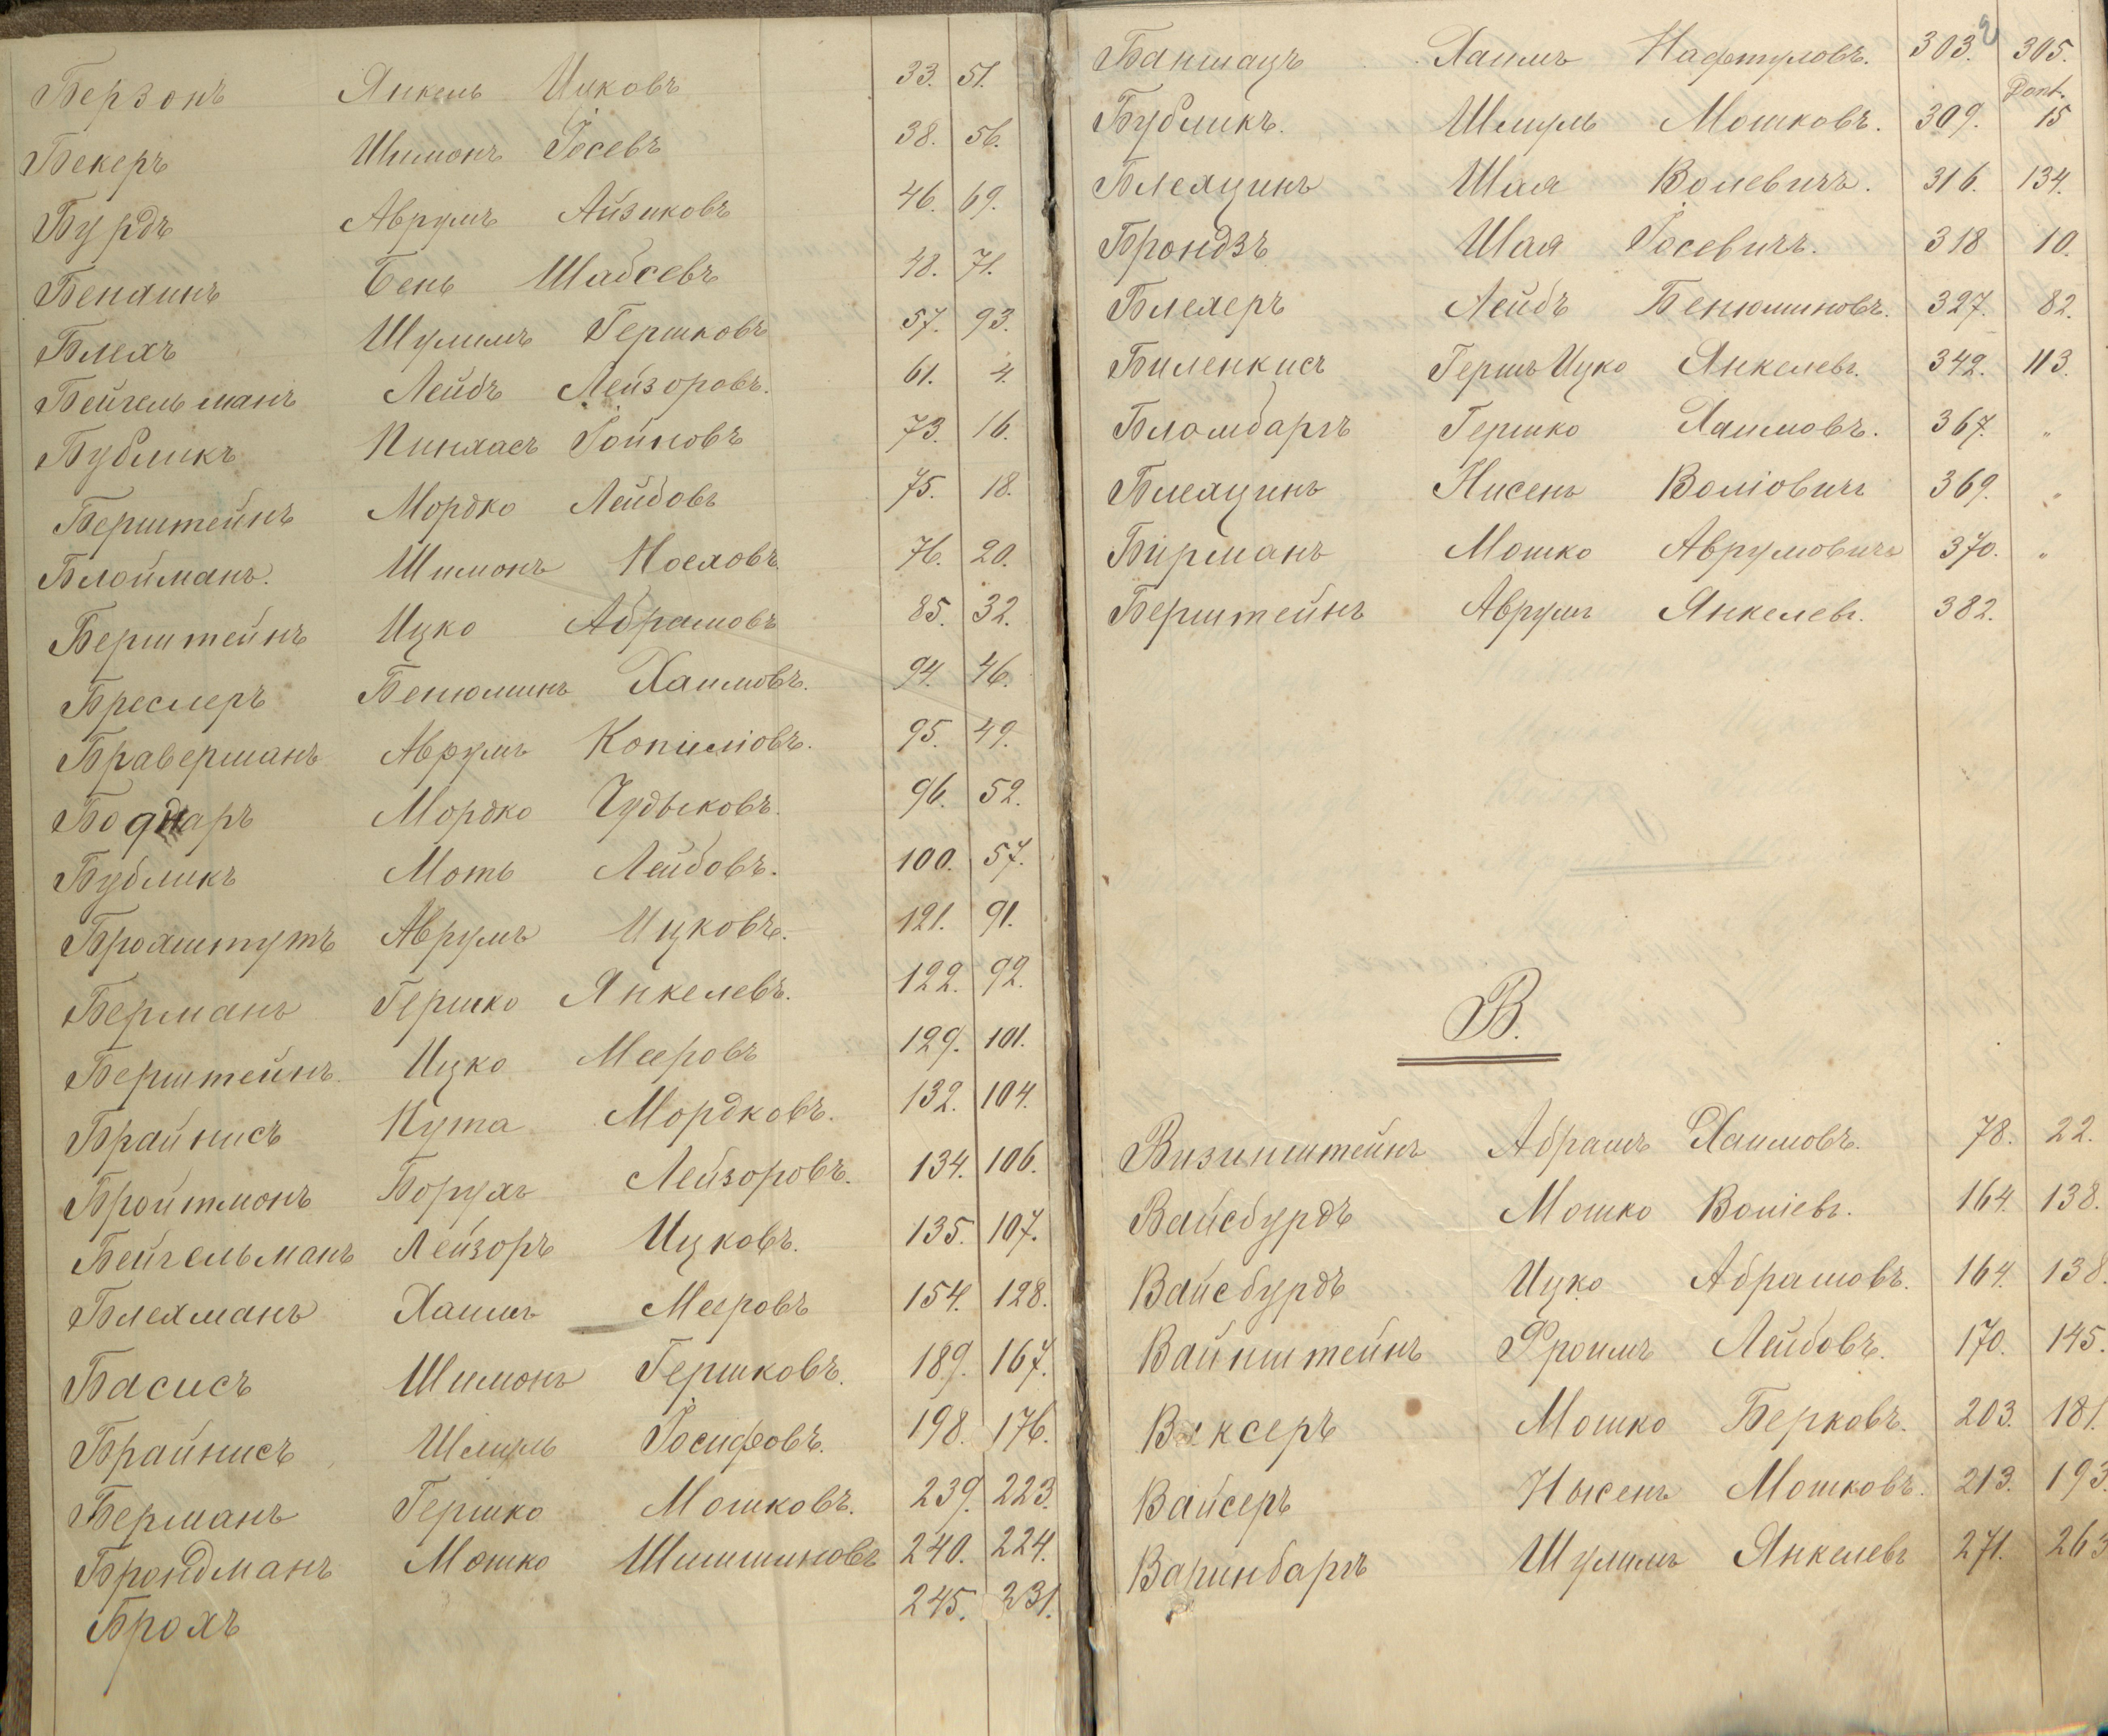 Берзонъ Янкель Ицковъ 33. 51.
Бекеръ Шимонъ Іосевъ 38. 56.
Бурдъ Аврумъ Айзиковъ 46. 69.
Бенлинъ Бень Шабсевъ 48. 71.
Блехъ Шулимъ Гершковъ 57. 93.
Бейгельманъ Лейбъ Лейзоровъ. 61. 4.
Бубликъ Пинхасъ Іойновъ 73. 16.
Берштейнъ Мордко Лейбовъ 75. 18.
Блойманъ. Шимонъ Носховъ 76. 20.
Берштейнъ Ицко Абрамовъ 85. 32.
Бреслеръ Бенюминъ Хаимовъ. 94. 46.
Браверманъ Аврумъ Копиліовъ. 95. 49.
Боднаръ Мордко Чудыковъ. 96. 52.
Бубликъ Моть Лейбовъ. 100. 57.
Брохштутъ Аврумъ Ицковъ. 121. 91.
Берманъ Гершко Янкелевъ. 122. 92.
Берштейнъ Ицко Мееровъ 129. 101.
Брайнисъ Нута Мордковъ. 132. 104.
Бройтмонъ Борухъ Лейзоровъ. 134. 106.
Бейгельманъ Лейзоръ Ицковъ. 135. 107.
Блехманъ Хаимъ Мееровъ 154. 128.
Басисъ Шимонъ Гершковъ. 189. 167.
Брайнисъ Шмуль Іосифовъ. 198. 176.
Берманъ Гершко Мошковъ. 239. 223.
Брондманъ Мошко Шимшиновъ 240. 224.
Брохъ 245. 231.
Баншацъ Хаимъ Нафтуловъ. 303. 305.
Бубликъ. Шмуль Мошковъ. 309. 15
Блехцинъ Шая Волевичъ. 316. 134.
Брондзъ Шая Іосевичъ. 318 10.
Блехеръ Лейбъ Бенюминовъ. 327. 82.
Биленкисъ Гершъ Ицко Янкелевъ. 342. 113.
Бломбаргъ Гершко Хаимовъ. 367. "
Блехцинъ Нисенъ Воліовичъ 369. "
Бирманъ Мошко Аврумовичъ 370. "
Берштейнъ Аврумъ Янкелевъ. 382.
В.
Визинштейнъ Абрамъ Хаимовъ. 78. 22.
Вайсбурдъ Мошко Воліевъ. 164. 138.
Вайсбурдъ Ицко Абрамовъ. 164. 138.
Вайнштейнъ Фроимъ Лейбовъ. 170. 145.
Вексеръ Мошко Берковъ. 203. 181.
Вайсеръ Нысенъ Мошковъ. 213. 193.
Варинбаргъ Шулимъ Янкелевъ 271. 263